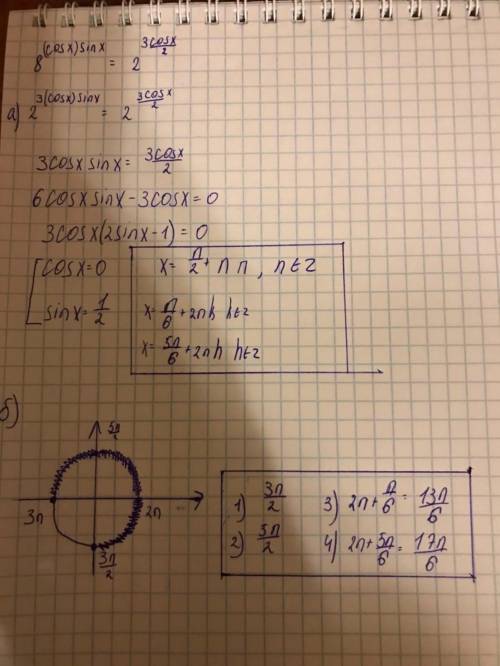 8^(cosx)sinx = 2^(3cosx/2)
а) 2^3(cosx)sinx = 2^(3cosx/2)
3cosx sinx = 3cosx/2
6cosx sinx - 3cosx = 0
3cosx(2sinx-1) = 0
cosx = 0
x = π/2 + πn, n∈Z
sinx = 1/2
x = π/6 + 2πn n∈Z
x = 5π/6 + 2πn n∈Z
б)
5π/2
3π
2π
3π/2
1) 3π/2
2) 5π/2
3) 2π + π/6 = 13π/6
4) 2π + 5π/6 = 17π/6